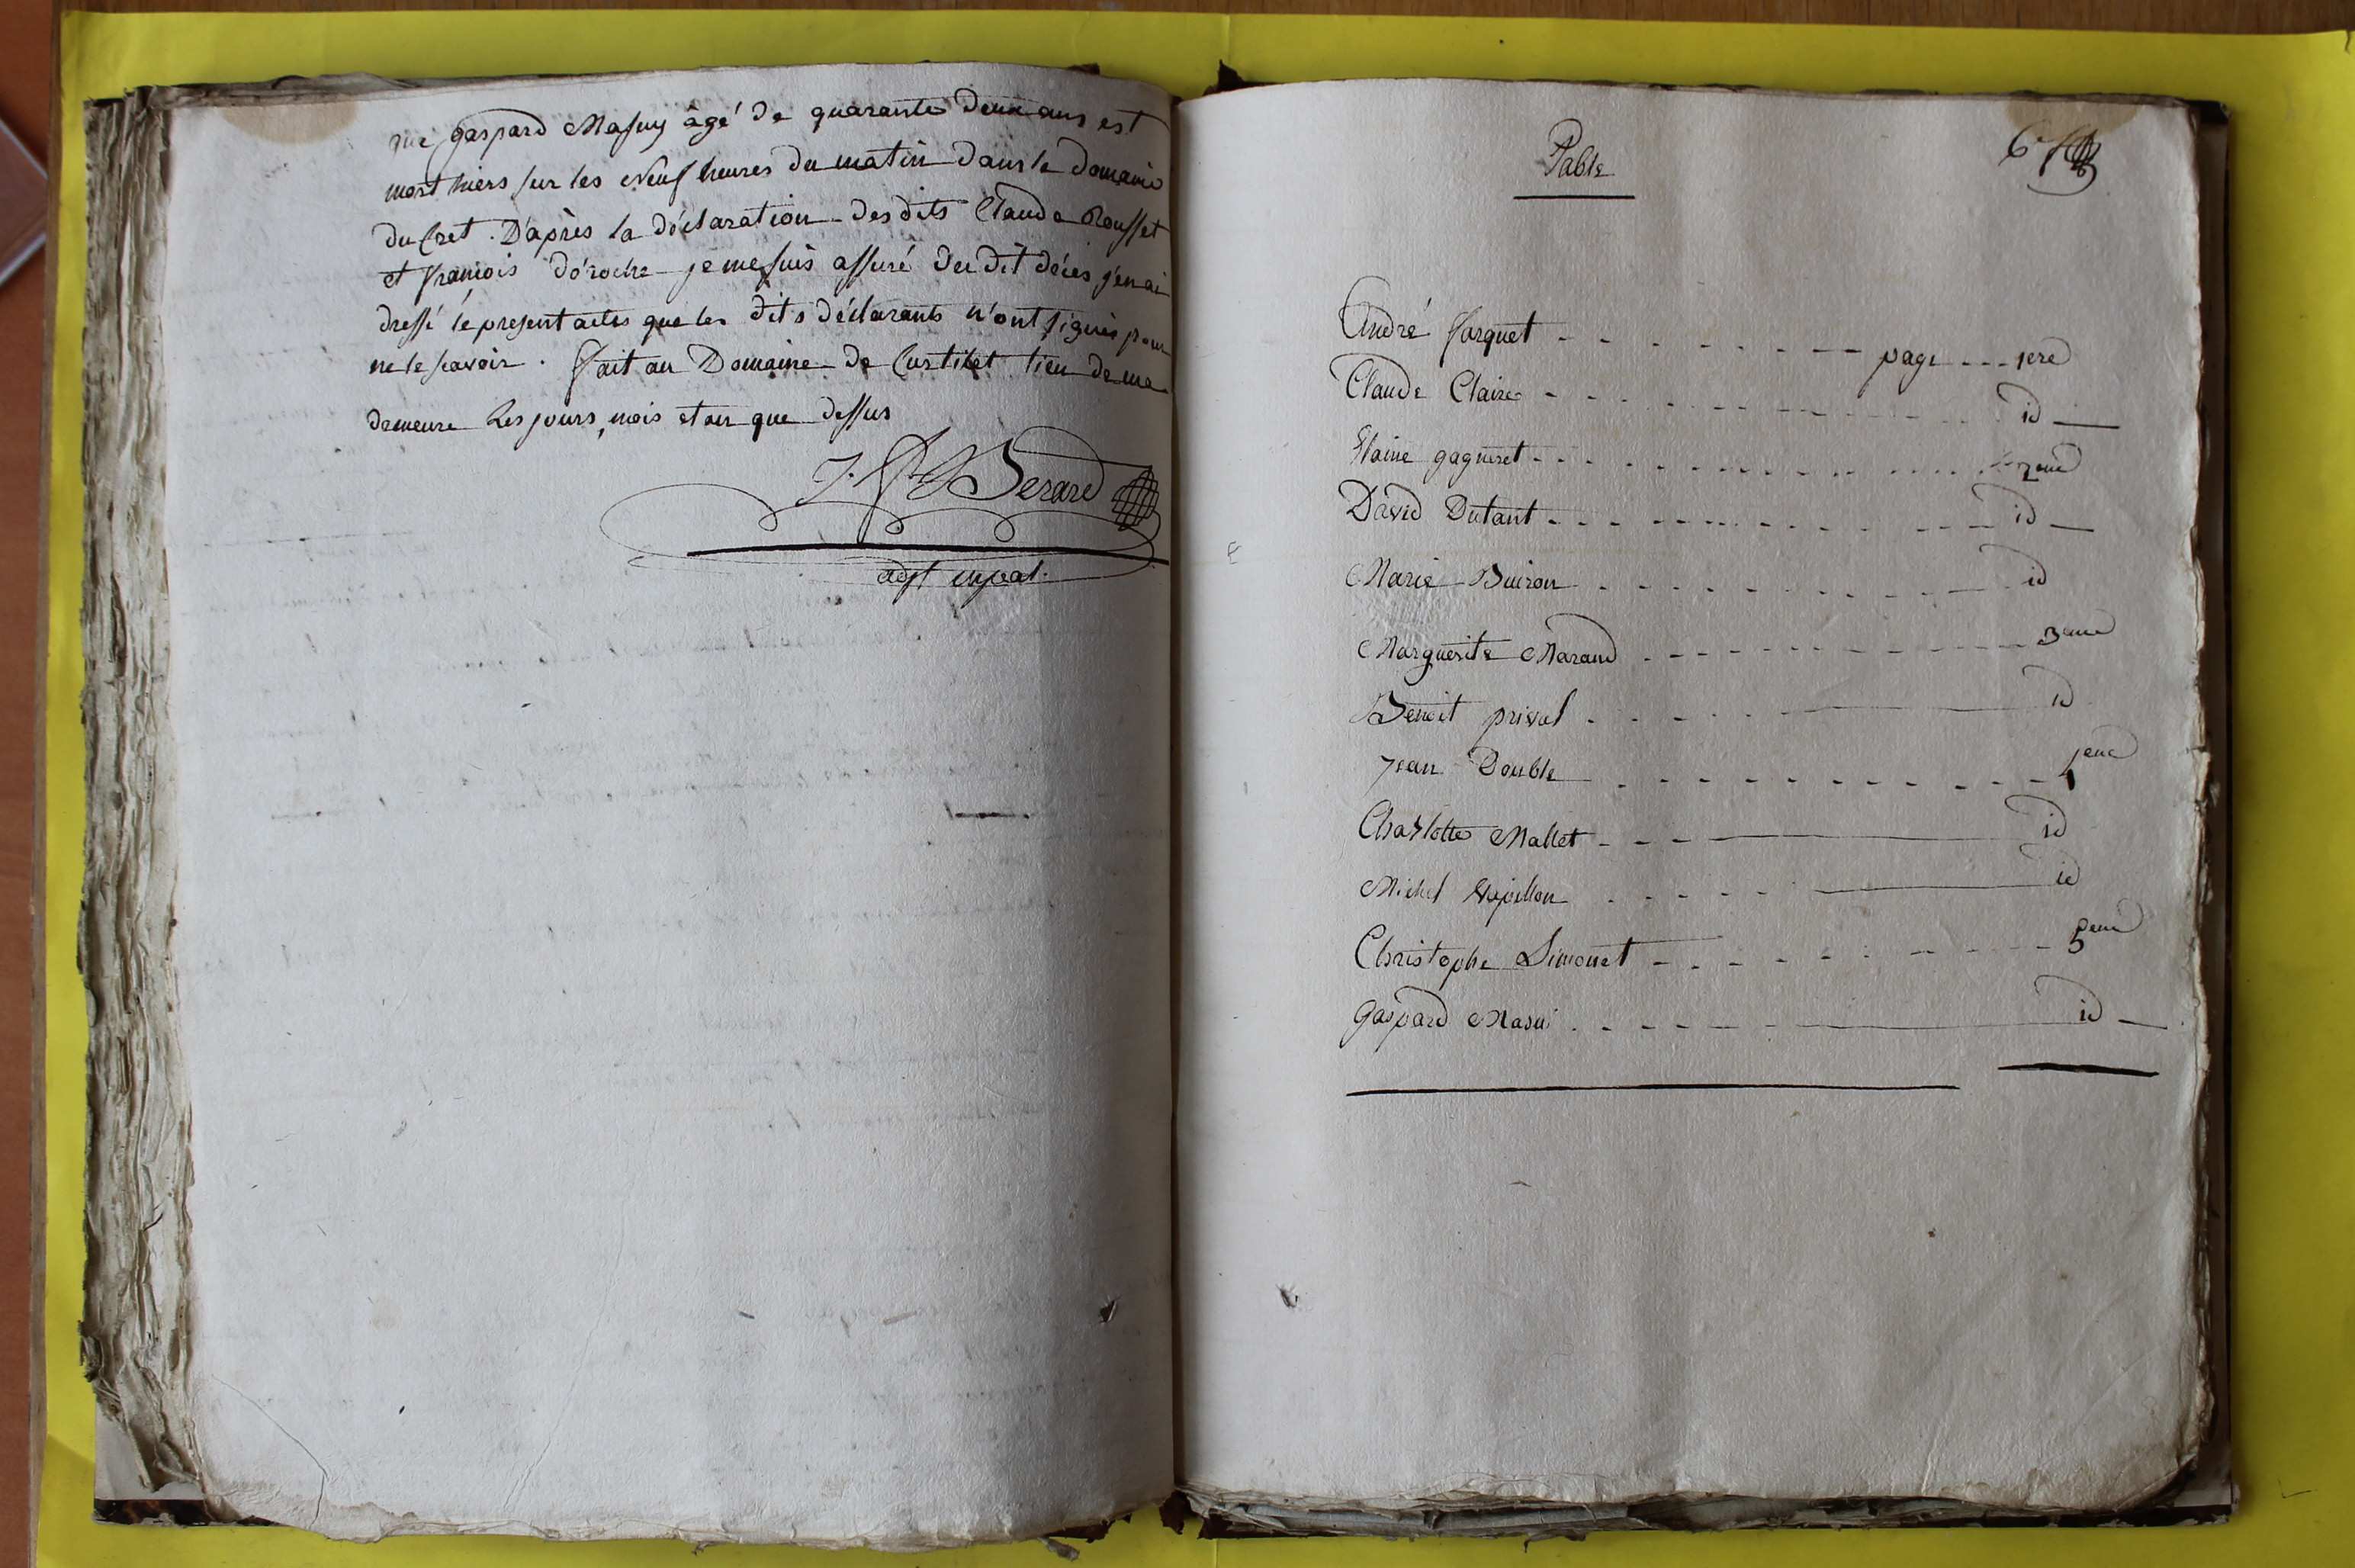 que gaspard Masuy âgé de quarante deux ans est
mort hiers sur les neuf heures du matin dans le domaine
du Cret. D'après la déclaration desdits Claude Rousset
et françois déroche je me suis assuré du dit décès j'en ai
dressé le present actes que les dits déclarants n'ont signés pour
ne le savoir. fait au Domaine de Curtilet lieu de ma
demeure les jours, mois et an que dessus
Berard
adjt
Table
6e
André farquet page 1ere
Claude Claire id
gagneret 2eme
David Dutant id
Marie Buiron id
Marguerite Maraud 3eme
Benoit prival id
jean Double 4eme
Charlotte Mallet id
Michel id
Christophe Simonet 5eme
gaspard Masui id